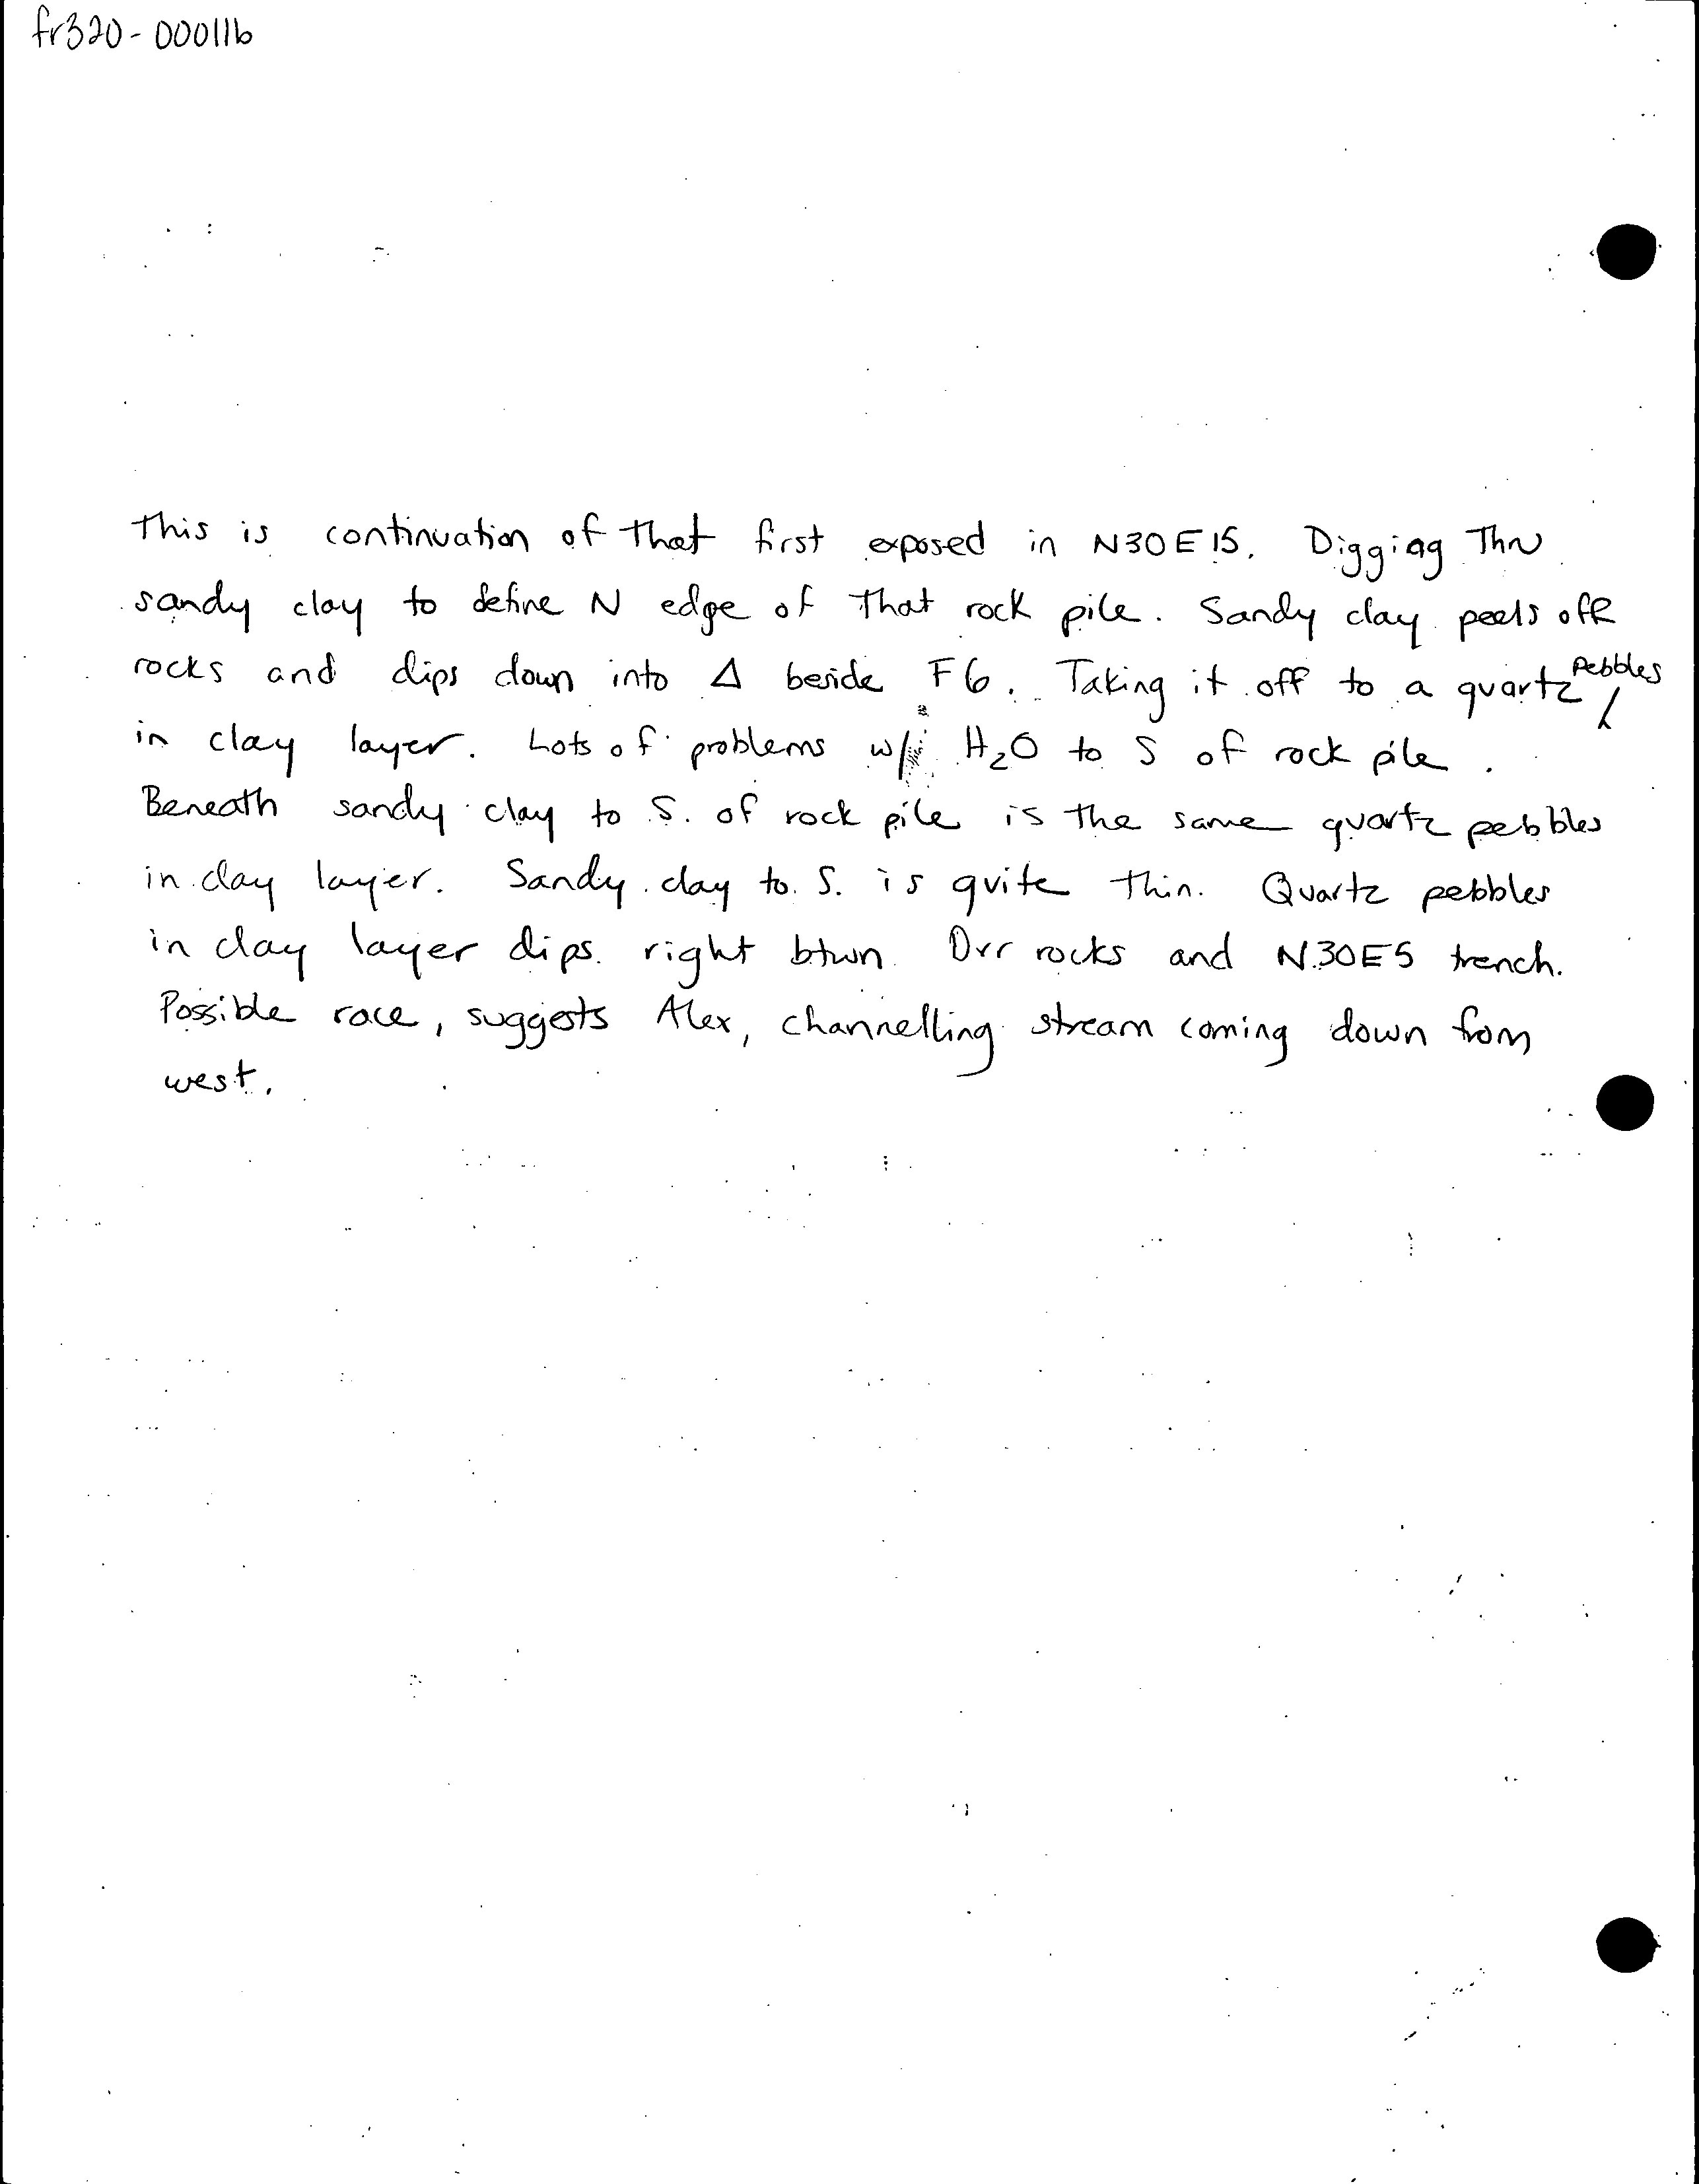 fr320-00011b
This is continuation of that first exposed in N30E15. Digging thru
sandy clay to define N edge of that rock pile. Sandy clay peels off
rocks and dips down into Δ beside F6. Taking it off to a quartz pebbles
in clay layer. Lots of problems w/ H₂O to S of rock pile.
Beneath sandy clay to S. of rock pile is the same quartz pebbles
in clay layer. Sandy clay to S. is quite thin. Quartz pebbles
in clay layer dips right btwn rocks and N30E5 trench.
Possible race, suggests Alex, channelling stream coming down from
west.